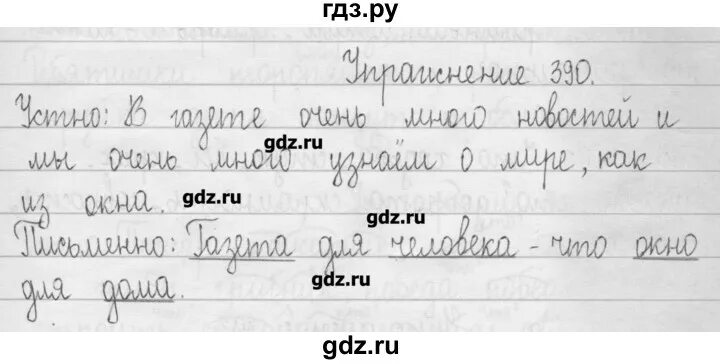 гдз.ру
Упражнение 390.
Устно: В газете очень много новостей и
gdz.ru
gdz.ru
мы очень много узнаём о мире, как
gdz.ru
из окна.
gdz.ru
Письменно: Газета для человека - что окно
gdz.ru
для дома.
gdz.ru